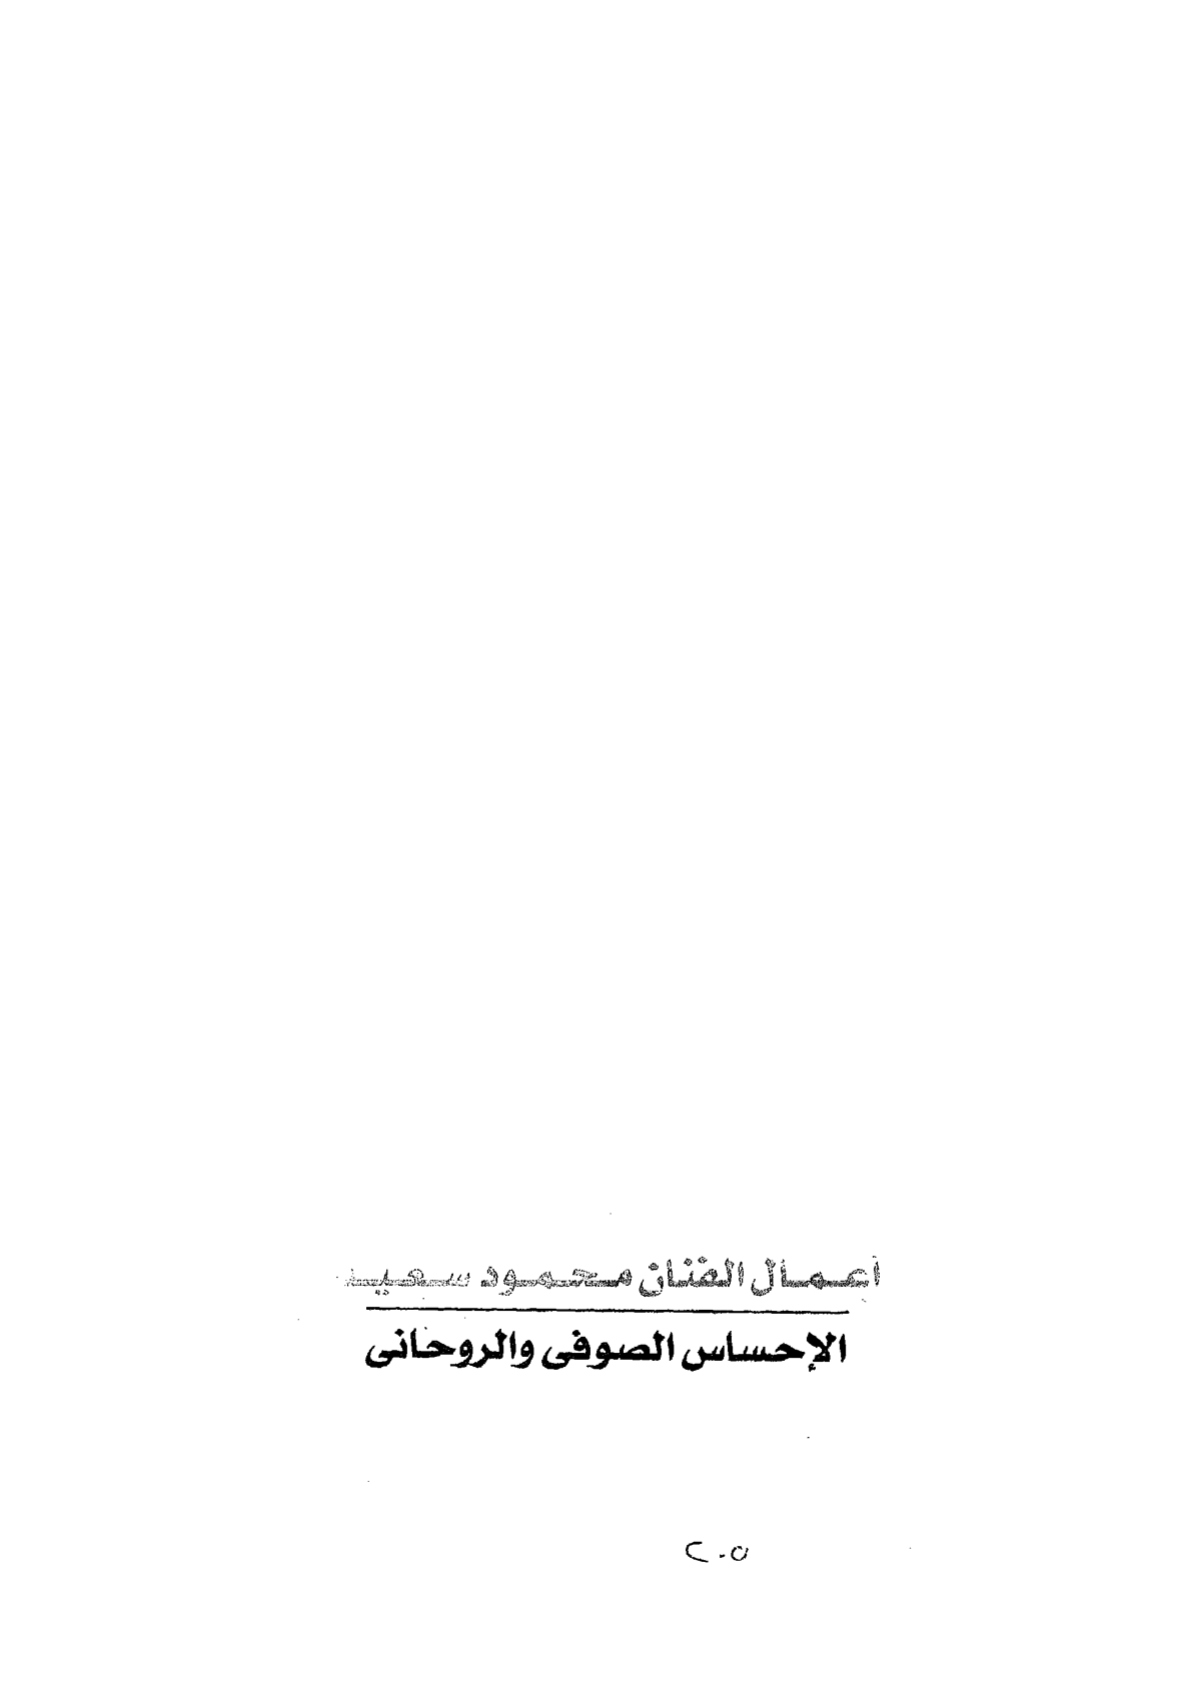 أعمال الفنان محمود سعيد
الإحساس الصوفى والروحانى
٢٠٥